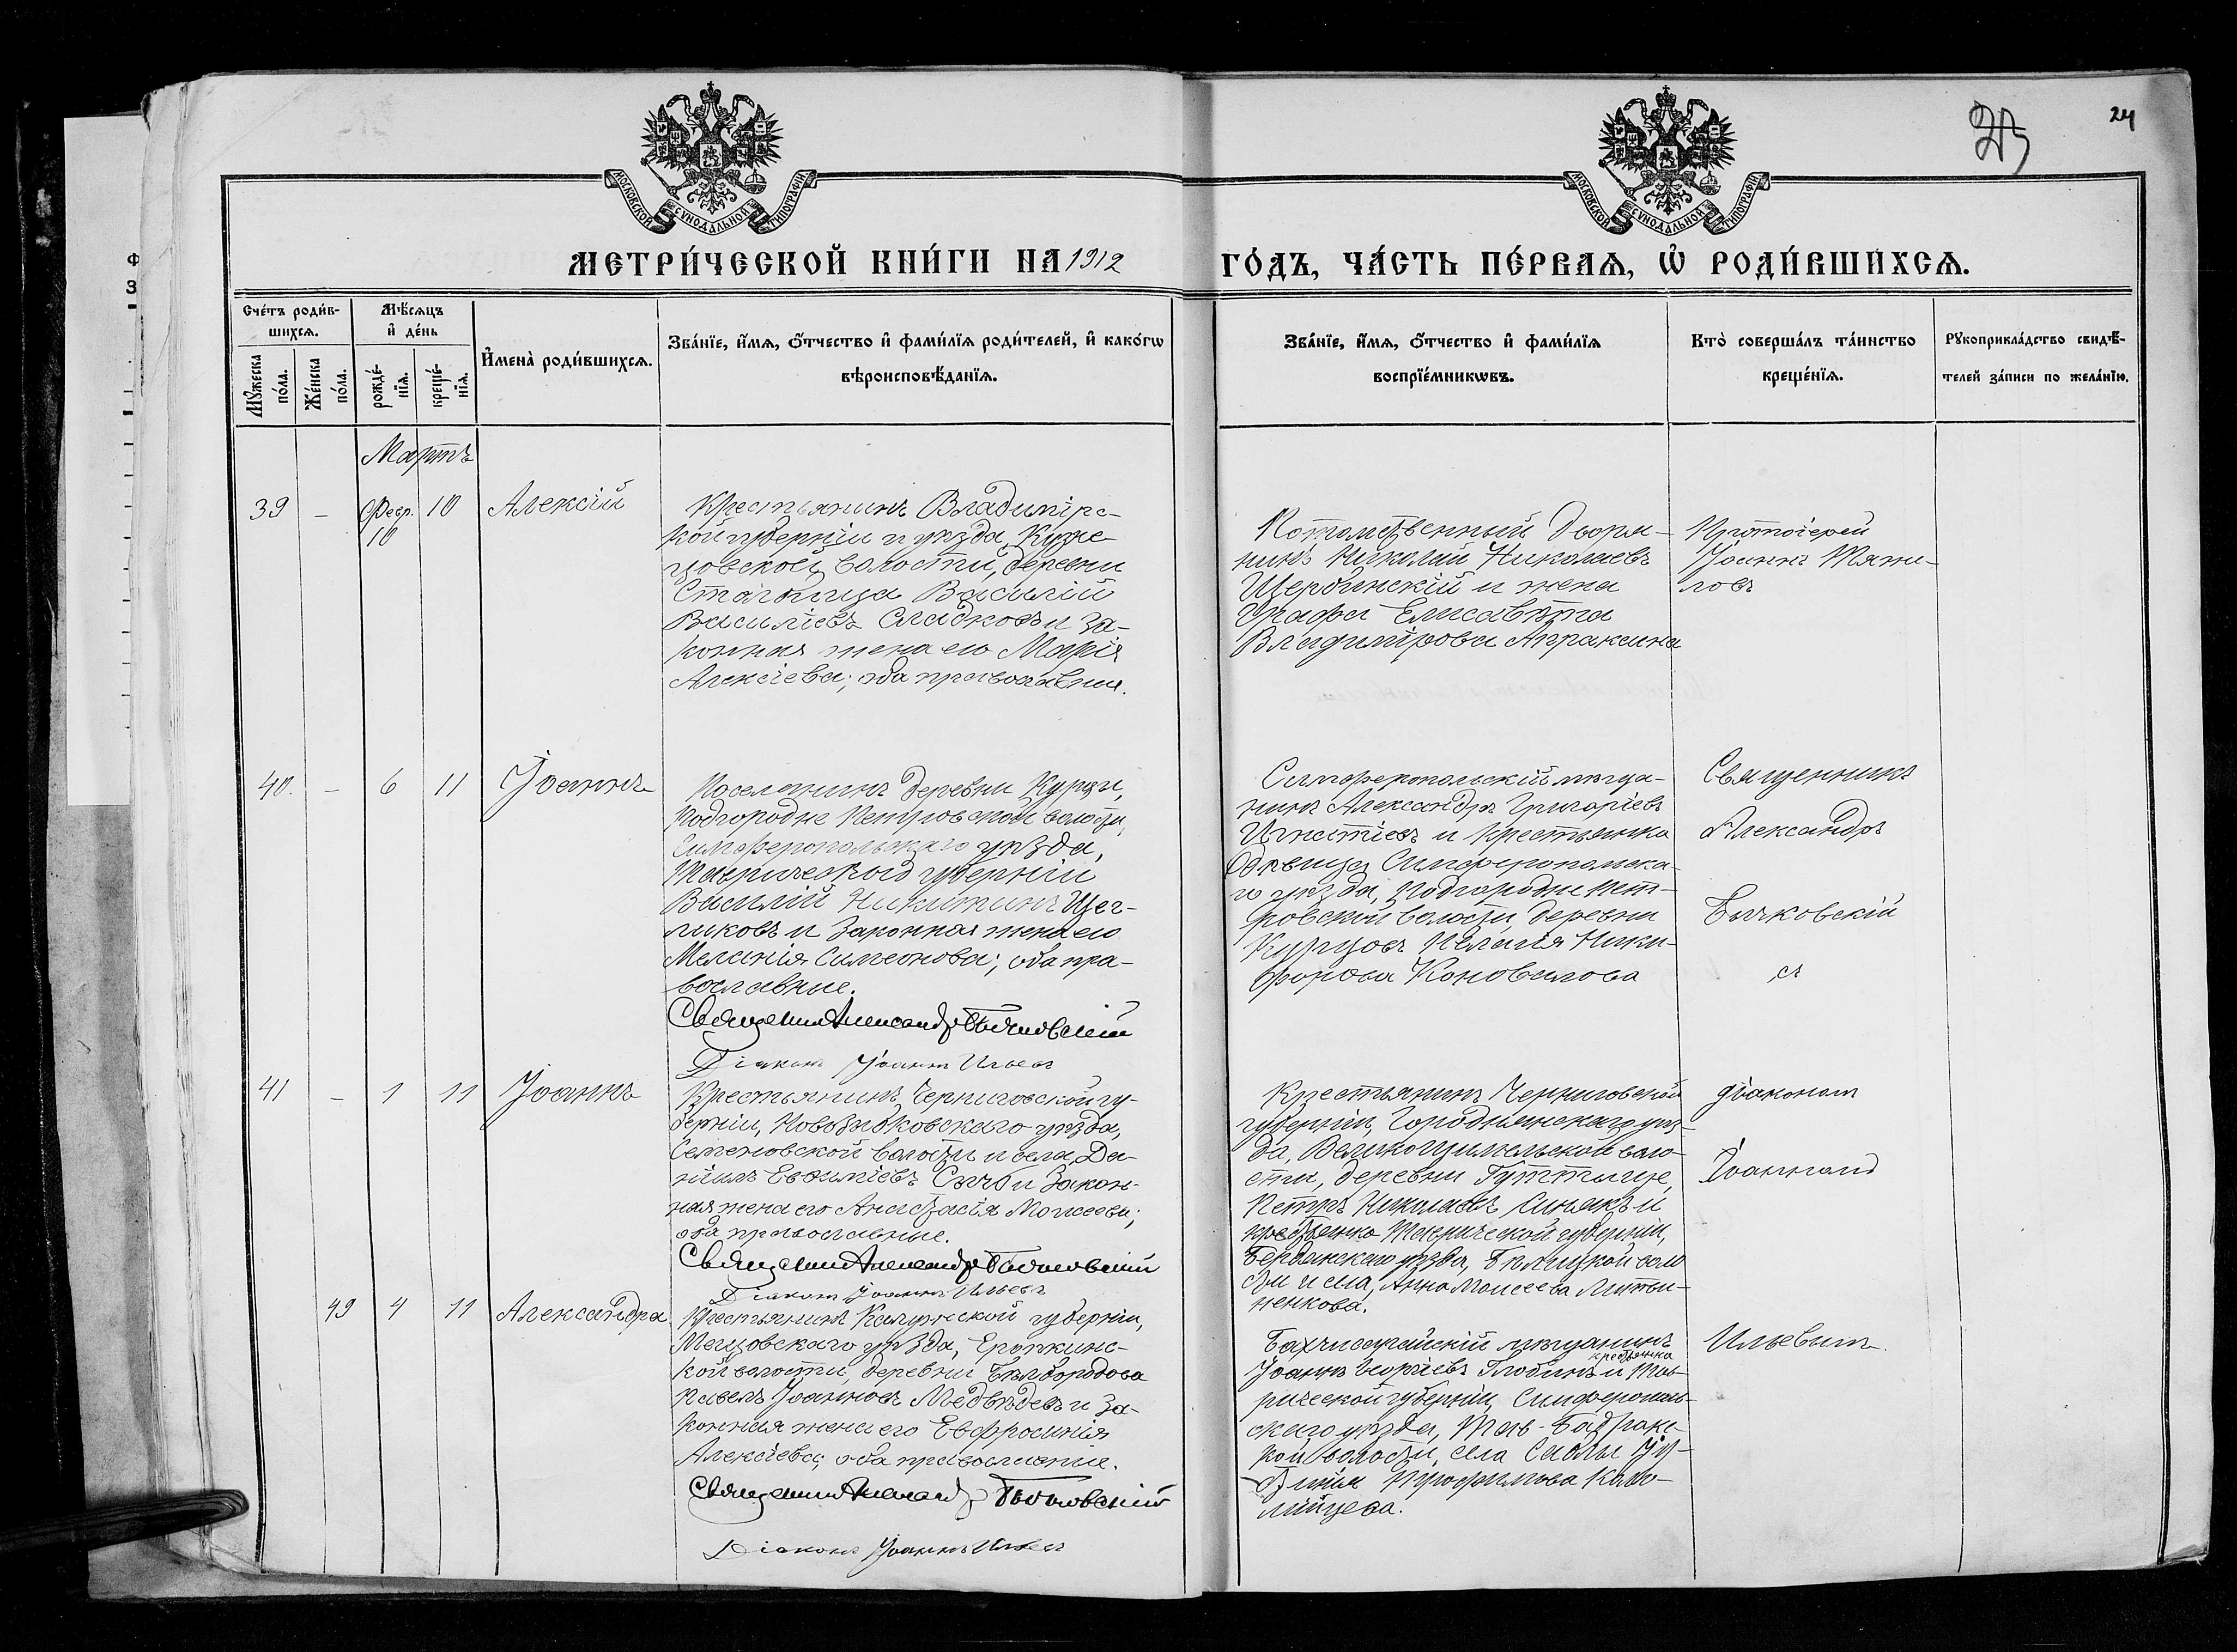 24
25
МОСКОВСКОЙ СѴНОДАЛЬНОЙ ТИПОГРАФІИ
МОСКОВСКОЙ СѴНОДАЛЬНОЙ ТИПОГРАФІИ
МЕТРИ́ЧЕСКОЙ КНИ́ГИ НА 1912
ГО́ДЪ, ЧА́СТЬ ПЕ́РВАѦ, Ѡ҆ РОДИ́ВШИХСѦ.
Сче́тъ роди́в-
шихсѧ.
Мꙋ́жеска
по́ла.
Же́нска
по́ла.
Мѣ́сѧцъ
и҆ де́нь
рожде́-
нїѧ.
креще́-
нїѧ.
И҆мена̀ роди́вшихсѧ.
Зва́нїе, и҆́мѧ, ѻ҆́тчество и҆ фами́лїѧ роди́телей, и҆ како́гѡ
вѣроисповѣ́данїѧ.
Зва́нїе, и҆́мѧ, ѻ҆́тчество и҆ фами́лїѧ
воспрїе́мникѡвъ.
Кто̀ соверша́лъ та́инство
креще́нїѧ.
Рꙋкоприкла́дство свидѣ́-
телей за́писи по жела́нїю.
Мартъ
39 - Февр. 10 10 Алексій
Крестьянинъ Владимірс-
кой губерніи и уѣзда, Кузне-
цовской волости, деревни
Василій
Василіевъ Сладковъ и за-
конная жена его Марія
Алексіева; оба православные.
Потомственный дворя-
нинъ Николай Николаевъ
Щербинскій и жена
Графа Елисавета
Владимірова Апраксина
Протоіерей
Іоаннъ Тяжи-
ловъ
40. - 6 11 Іоаннъ
Поселянинъ деревни Курцы,
Подгородне Петровской волости,
Симферопольскаго уѣзда,
Таврической губерніи
Василій Никитинъ Щег-
ликовъ и законная жена его
Меланія Симеонова; оба пра-
вославные.
Священникъ Александръ Бычковскій
Діаконъ Іоаннъ Ильевъ
Симферопольскій мѣща-
нинъ Александръ Григоріевъ
Игнатіевъ и крестьянка
дѣвица Симферопольска-
го уѣзда, Подгородне Пет-
ровской волости, деревни
Курцовъ Пелагія Ники-
форова Коновалова
Священникъ
Александръ
Бычковскій
съ
41 - 1 11 Іоаннъ
Крестьянинъ Черниговской гу-
берніи, Новозыбковскаго уѣзда,
Семеновской волости и села, Да-
ніилъ Евфиміевъ Сычъ и закон-
ная жена его Анастасія Моисеева;
оба православные.
Священникъ Александръ Бычковскій
Діаконъ Іоаннъ Ильевъ
Крестьянинъ Черниговской
губерніи, Городнянскаго уѣз-
да, воло-
сти, деревни
Петръ Николаевъ Синякъ и
крестьянка Таврической губерніи,
Бердянскаго уѣзда, воло
сти и села, Анна Моисеева Литви-
ненкова.
діакономъ
Іоанномъ
49 4 11 Александра
Крестьянинъ Калужской губерніи,
Мещовскаго уѣзда, Еропкинс-
кой волости, деревни Бѣлбородова
Павелъ Іоанновъ Медвѣдевъ и за-
конная жена его Евфросинія
Алексіева; оба православные.
Священникъ Александръ Бычковскій
Діаконъ Іоаннъ Ильевъ
Бахчисарайскій мѣщанинъ
Іоаннъ Георгіевъ Глобинъ и крестьянка Тав-
рической губерніи, Симферополь-
скаго уѣзда, Тав-Бадракс-
кой волости, села Саблы Іу-
стинія Трофимова Коло-
мійцева.
Ильевымъ.